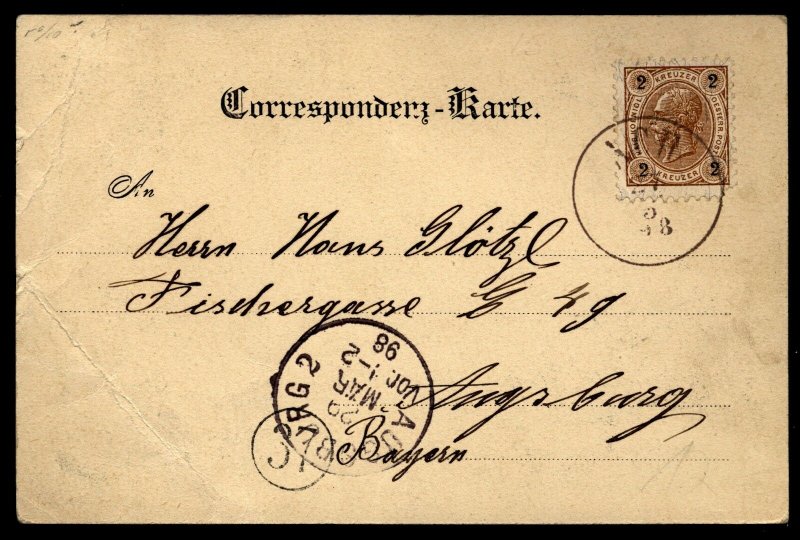 Correspondenz-Karte.
2 KREUZER 2
2 KREUZER 2
3
98
An
Herrn Hans Glötzl
Fischergasse G 49
Augsburg
Bayern
AUGSBURG 2
29
MAR
Vor. 1-2
98